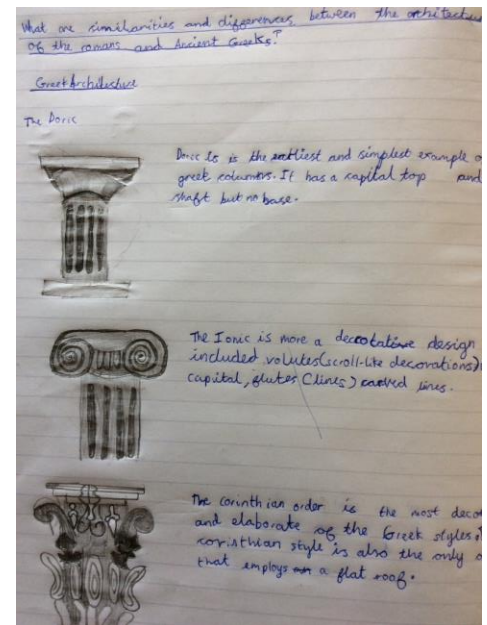 What are similarities and differences between the architecture
of the romans and Ancient Greeks?
Greek Architecture
The Doric
Doric is is the earliest and simplest example
greek columns. It has a capital top and
shaft but no base.
The Ionic is more a decorative design
included volutes (scroll-like decorations)
capital, flutes (lines) carved lines.
The corinthian order is the most
and elaborate of the Greek styles.
corinthian style is also the only
that employs a flat roof.